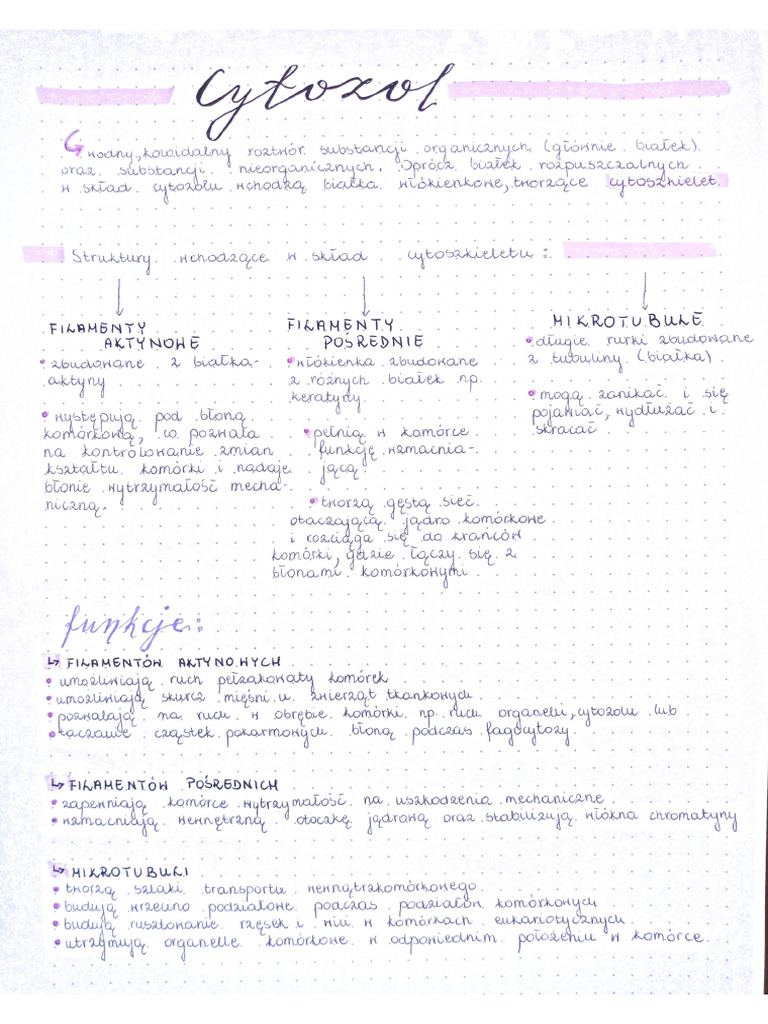 Cytozol
wodny, koloidalny roztwór substancji organicznych (głównie białek)
oraz substancji nieorganicznych. Oprócz białek rozpuszczalnych
w skład cytozolu wchodzą białka włókienkowe, tworzące cytoszkielet.
Struktury wchodzące w skład cytoszkieletu:
FILAMENTY
AKTYNOWE
• zbudowane z białka-
aktyny
• występują pod błoną
komórkową, co pozwala
na kontrolowanie zmian
kształtu komórki i nadaje
błonie wytrzymałość mecha-
niczną.
FILAMENTY
POŚREDNIE
• włókienka zbudowane
z różnych białek np.
keratyny
• pełnią w komórce
funkcję wzmacnia-
jącą
• tworzą gęstą sieć
otaczającą jądro komórkowe
i rozciąga się do krańców
komórki, gdzie łączy się z
błonami komórkowymi
MIKROTUBULE
• długie rurki zbudowane
z tubuliny (białka)
• mogą zanikać i się
pojawiać, wydłużać i
skracać
funkcje:
↳ FILAMENTÓW AKTYNOWYCH
• umożliwiają ruch pełzakowaty komórek
• umożliwiają skurcz mięśni u zwierząt tkankowych
• pozwalają na ruch w obrębie komórki np. ruch organelli, cytozolu lub
• otaczanie cząstek pokarmowych błoną podczas fagocytozy.
↳ FILAMENTÓW POŚREDNICH
• zapewniają komórce wytrzymałość na uszkodzenia mechaniczne
• wzmacniają wewnętrzną otoczkę jądrową oraz stabilizują włókna chromatyny
↳ MIKROTUBULI
• tworzą szlaki transportu wewnątrzkomórkowego.
• budują wrzeciono podziałowe podczas podziałów komórkowych
• budują rusztowanie rzęsek i wici w komórkach eukariotycznych
• utrzymują organelle komórkowe w odpowiednim położeniu w komórce.